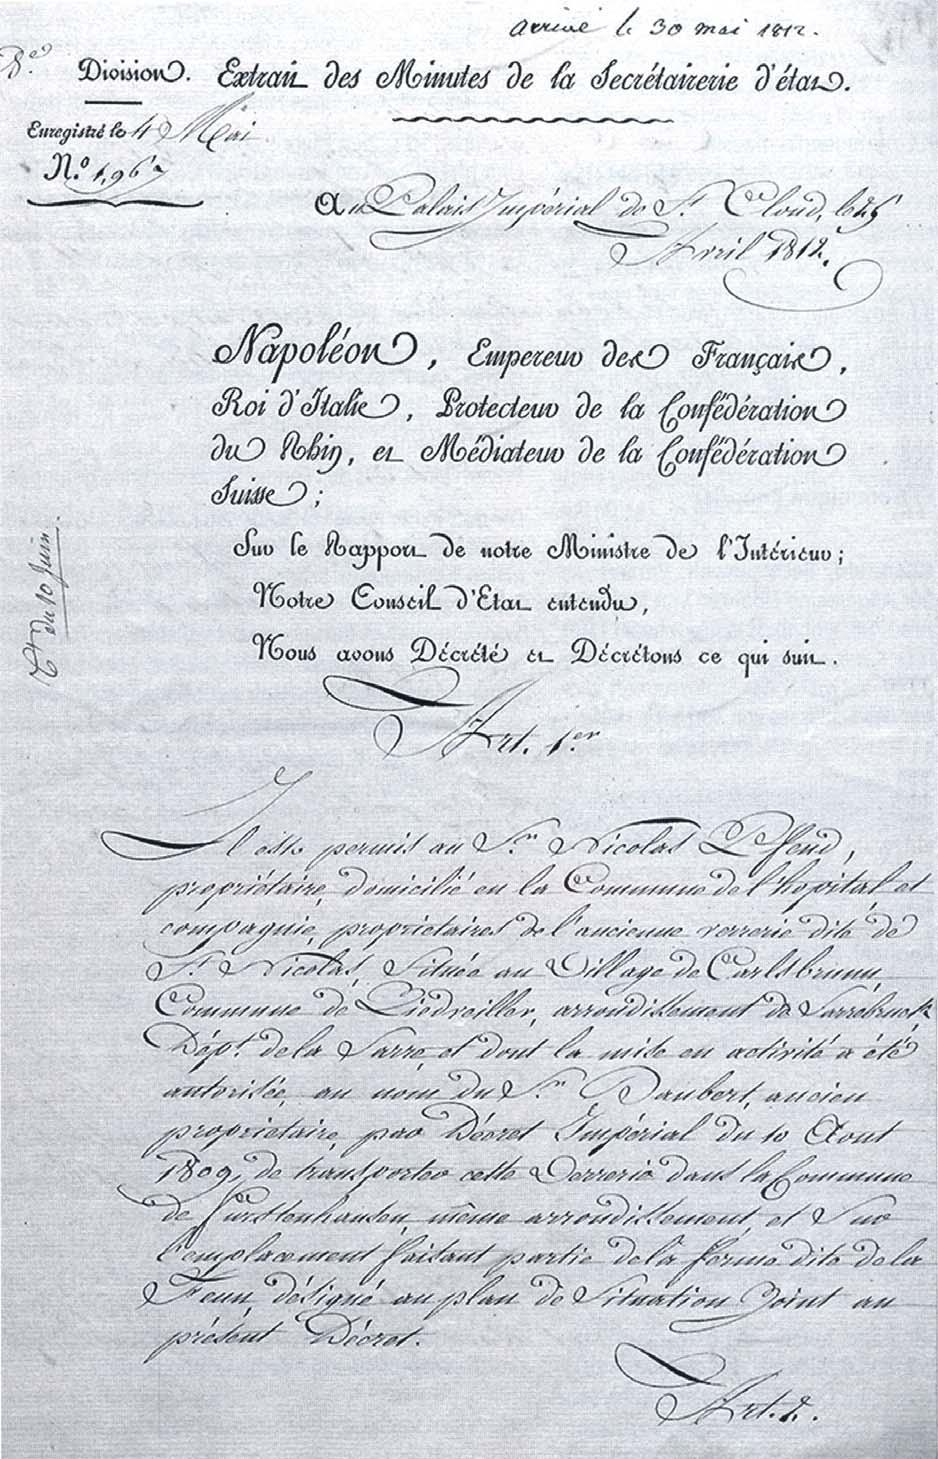 arrivé le 30 mai 1812.
Division. Extrait des Minutes de la Secrétairerie d'état.
Enregistré le 4 Mai
N.º
Au Palais Impérial de S.t Cloud, le 25
Avril 1812.
Napoléon, Empereur des Français,
Roi d'Italie, Protecteur de la Confédération
du Rhin, et Médiateur de la Confédération
Suisse;
Sur le Rapport de notre Ministre de l'Intérieur;
Notre Conseil d'Etat entendu,
Nous avons Décrété et Décrétons ce qui suit.
du 10 Juin.
Art. 1.er
Il est permis au S.r Nicolas
propriétaire, domicilié en la Commune de l'hopital et
compagnie, propriétaires de l'ancienne verrerie dite de
S.t Nicolas, Située au Village de Carlsbrunn,
Commune de arrondissement de Sarrebruck
Dép.t de la Sarre, et dont la mise en activité a été
autorisée, au nom du S.r ancien
propriétaire, par Décret Impérial du 10 Aout
1809, de transporter cette Verrerie dans la Commune
de Furstenhausen, même arrondissement, et Sur
l'emplacement faisant partie de la ferme dite de la
Fenn, désigné au plan de Situation Joint au
présent Décret.
Art. 2.